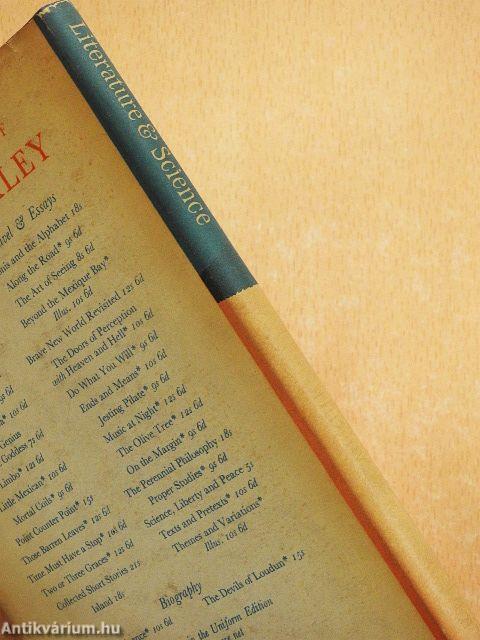 Literature & Science
F
LEY
vel & Essays
nis and the Alphabet 18s
Along the Road* 9s 6d
The Art of Seeing 8s 6d
Beyond the Mexique Bay*
Illus. 10s 6d
Brave New World Revisited 12s 6d
The Doors of Perception
with Heaven and Hell* 10s 6d
Do What You Will* 9s 6d
Ends and Means* 10s 6d
Jesting Pilate* 9s 6d
Music at Night* 12s 6d
The Olive Tree* 12s 6d
On the Margin* 9s 6d
The Perennial Philosophy 18s
Proper Studies* 9s 6d
Science, Liberty and Peace 5s
Texts and Pretexts* 10s 6d
Themes and Variations*
Illus. 10s 6d
Biography
The Devils of Loudun* 15s
in the Uniform Edition
6d
10s 6d
Genius
Goddess 7s 6d
Limbo* 12s 6d
Little Mexican* 10s 6d
Mortal Coils* 9s 6d
Point Counter Point* 15s
Those Barren Leaves* 12s 6d
Time Must Have a Stop* 10s 6d
Two or Three Graces* 12s 6d
Collected Short Stories 21s
Island 18s
ance* 10s 6d
Antikvárium.hu